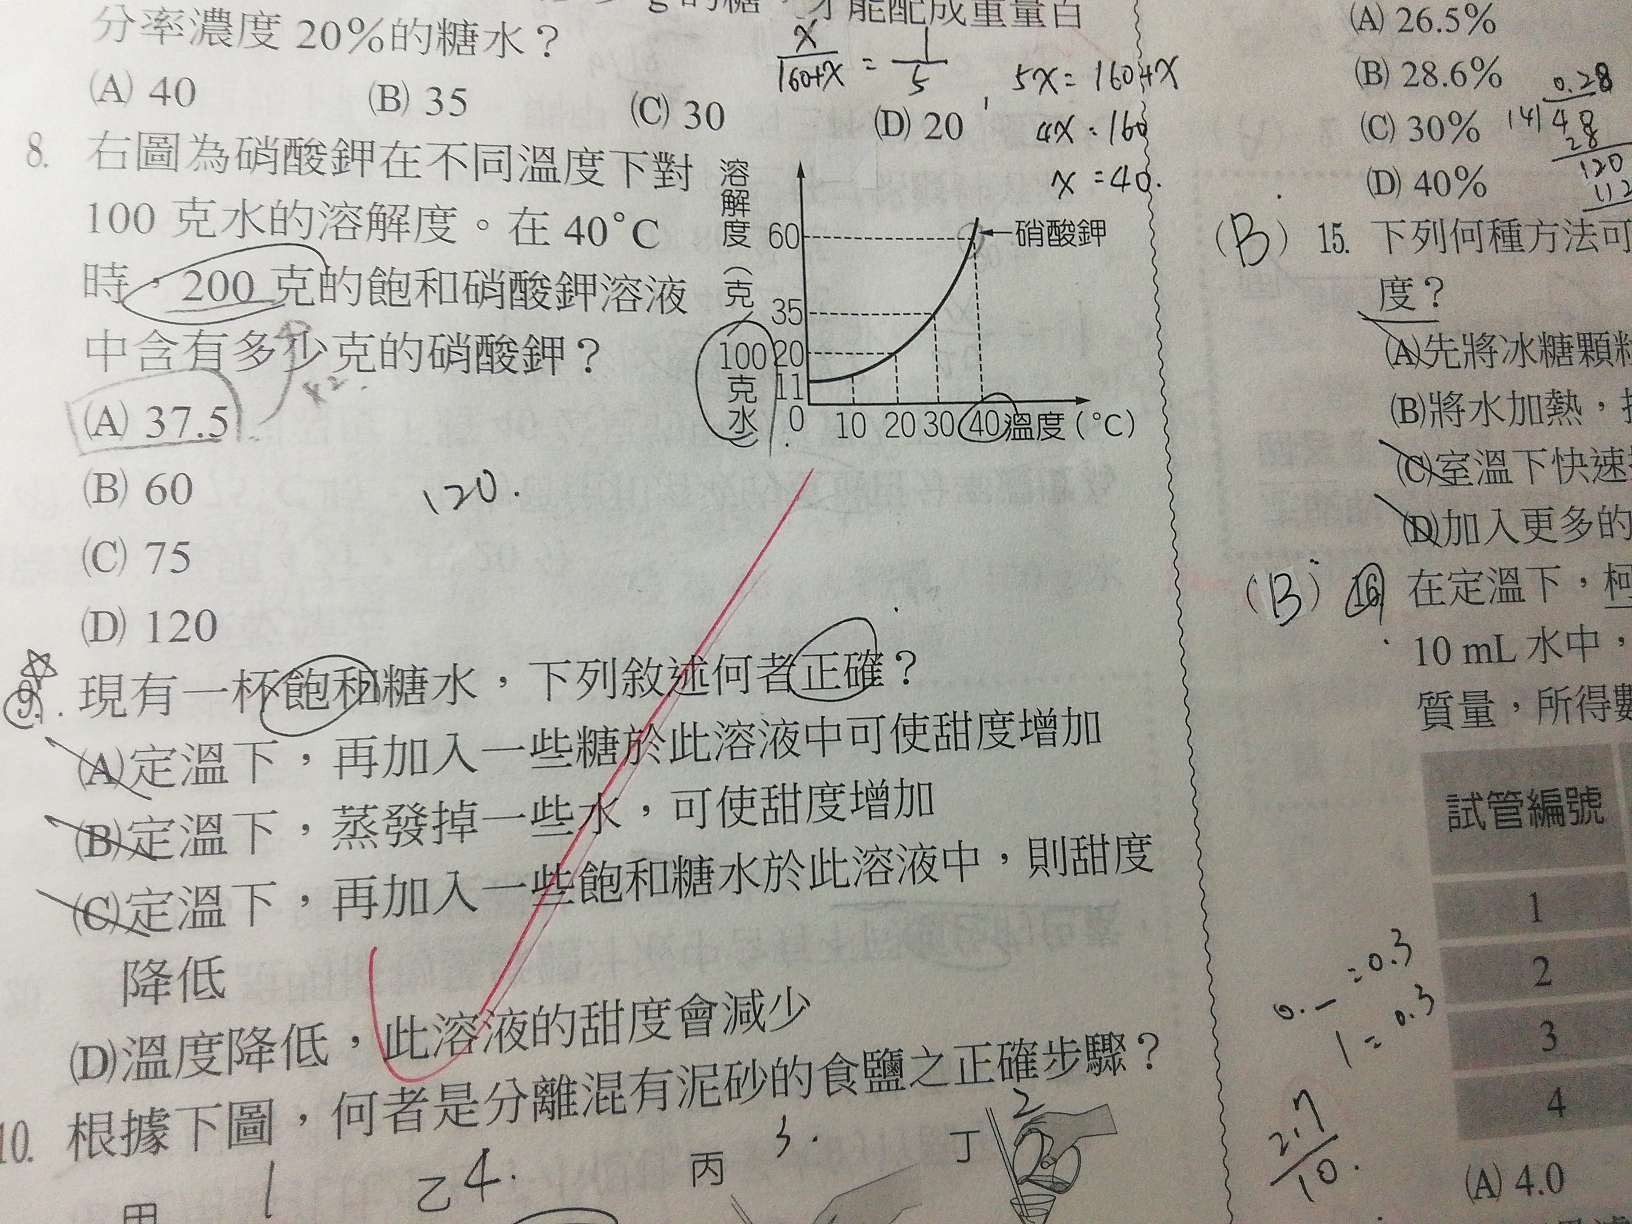 才能配成重量百
分率濃度 20%的糖水？
(A) 40 (B) 35 (C) 30 (D) 20
x/(160+x) = 1/5
5x = 160+x
4x = 160
x = 40.
8. 右圖為硝酸鉀在不同溫度下對
100 克水的溶解度。在 40°C
時，200 克的飽和硝酸鉀溶液
中含有多少克的硝酸鉀？
(A) 37.5
(B) 60
(C) 75
(D) 120
120.
溶解度（克
100
克水
60
35
20
11
0
10 20 30 40 溫度（°C）
硝酸鉀
9. 現有一杯飽和糖水，下列敘述何者正確？
(A)定溫下，再加入一些糖於此溶液中可使甜度增加
(B)定溫下，蒸發掉一些水，可使甜度增加
(C)定溫下，再加入一些飽和糖水於此溶液中，則甜度
降低
(D)溫度降低，此溶液的甜度會減少
10. 根據下圖，何者是分離混有泥砂的食鹽之正確步驟？
甲 1 乙 4. 丙 3. 丁 2
(A) 26.5%
(B) 28.6%
(C) 30%
(D) 40%
0.28
14)48
28
120
112
(B) 15. 下列何種方法可
度？
(A)先將冰糖顆粒
(B)將水加熱，
(C)室溫下快速
(D)加入更多的
(B) 16. 在定溫下，
10 mL 水中，
質量，所得數
試管編號
1
2
3
4
0.
1
=0.3
= 0.3
2.7
10.
(A) 4.0